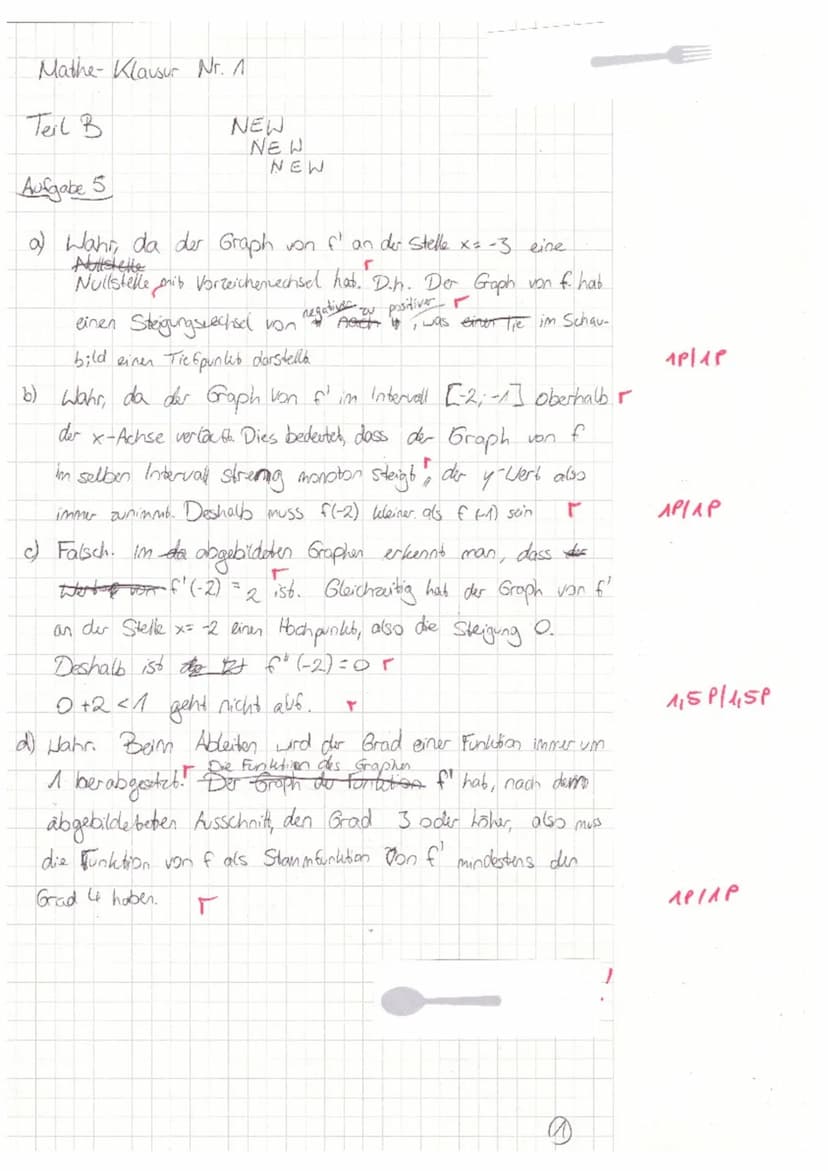 Mathe-Klausur Nr. 1
Teil B
NEW
NEW
NEW
Aufgabe 5
a) Wahr, da der Graph von f' an der Stelle x=-3 eine
Nullstelle
Nullstelle, mit Vorzeichenwechsel hat. D.h. Der Graph von f hat
einen Steigungswechsel von negativer zu positiver, was einer Tie im Schau-
bild einen Tiefpunkt darstellt
1P/1P
b) Wahr, da der Graph von f' im Intervall [-2;-1] oberhalb
der x-Achse verläuft. Dies bedeutet, dass der Graph von f
im selben Intervall streng monoton steigt, der y-Wert also
immer zunimmt. Deshalb muss f(-2) kleiner als f(-1) sein
1P/1P
c) Falsch. Im da abgebildeten Graphen erkennt man, dass der
f'(-2) = 2 ist. Gleichzeitig hat der Graph von f'
an der Stelle x=-2 einen Hochpunkt, also die Steigung 0.
Deshalb ist f''(-2)=0
0+2<1 geht nicht auf.
1,5P/1,5P
d) Wahr. Beim Ableiten wird der Grad einer Funktion immer um
1 herabgesetzt. Die Funktion des Graphen Der Graph der Funktion f' hat, nach dem
abgebildeteten Ausschnitt, den Grad 3 oder höher, also muss
die Funktion von f als Stammfunktion von f' mindestens den
Grad 4 haben.
1P/1P
!
1